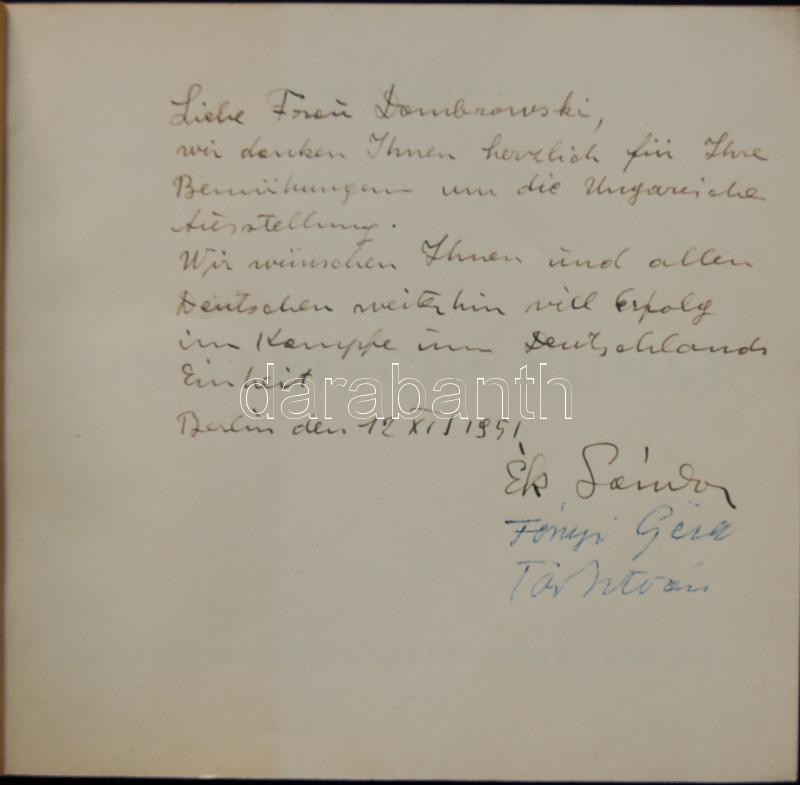 Liebe Frau Dombrowski,
wir danken Ihnen herzlich für Ihre
Bemühungen um die Ungarische
Ausstellung.
Wir wünschen Ihnen und allen
Deutschen weiterhin vill Erfolg
im Kampfe um Deutschlands
Einheit
darabanth
Berlin den 12 XII 1951
Ék Sándor
Fónyi Géza
István